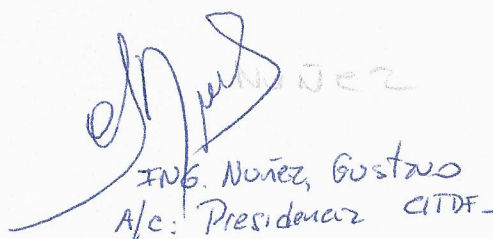 NUÑEZ
ING. Nuñez, Gustavo
A/c: Presidencia CITDF_